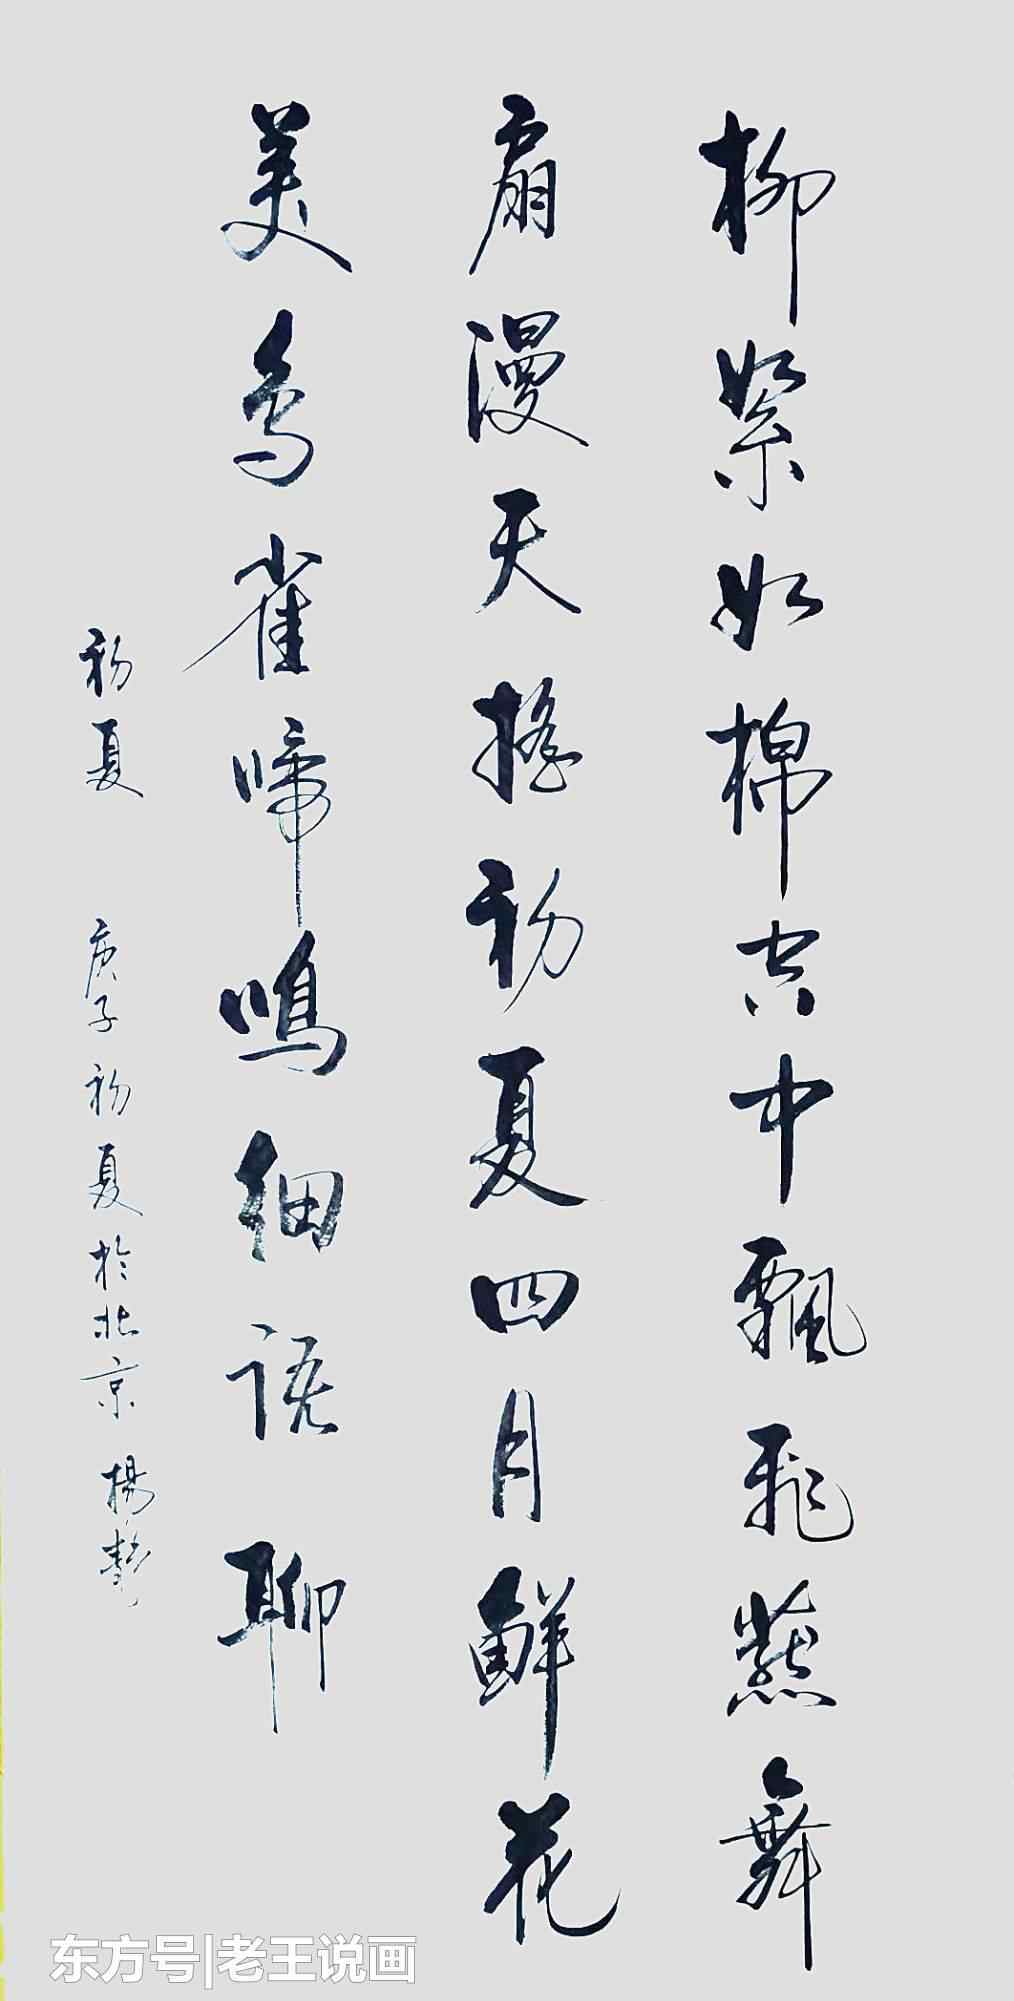 柳絮如棉空中飘飛燕舞
扇漫天摇初夏四月鲜花
美鸟雀啼鳴细语聊
初夏 庚子初夏於北京 楊静
东方号|老王说画